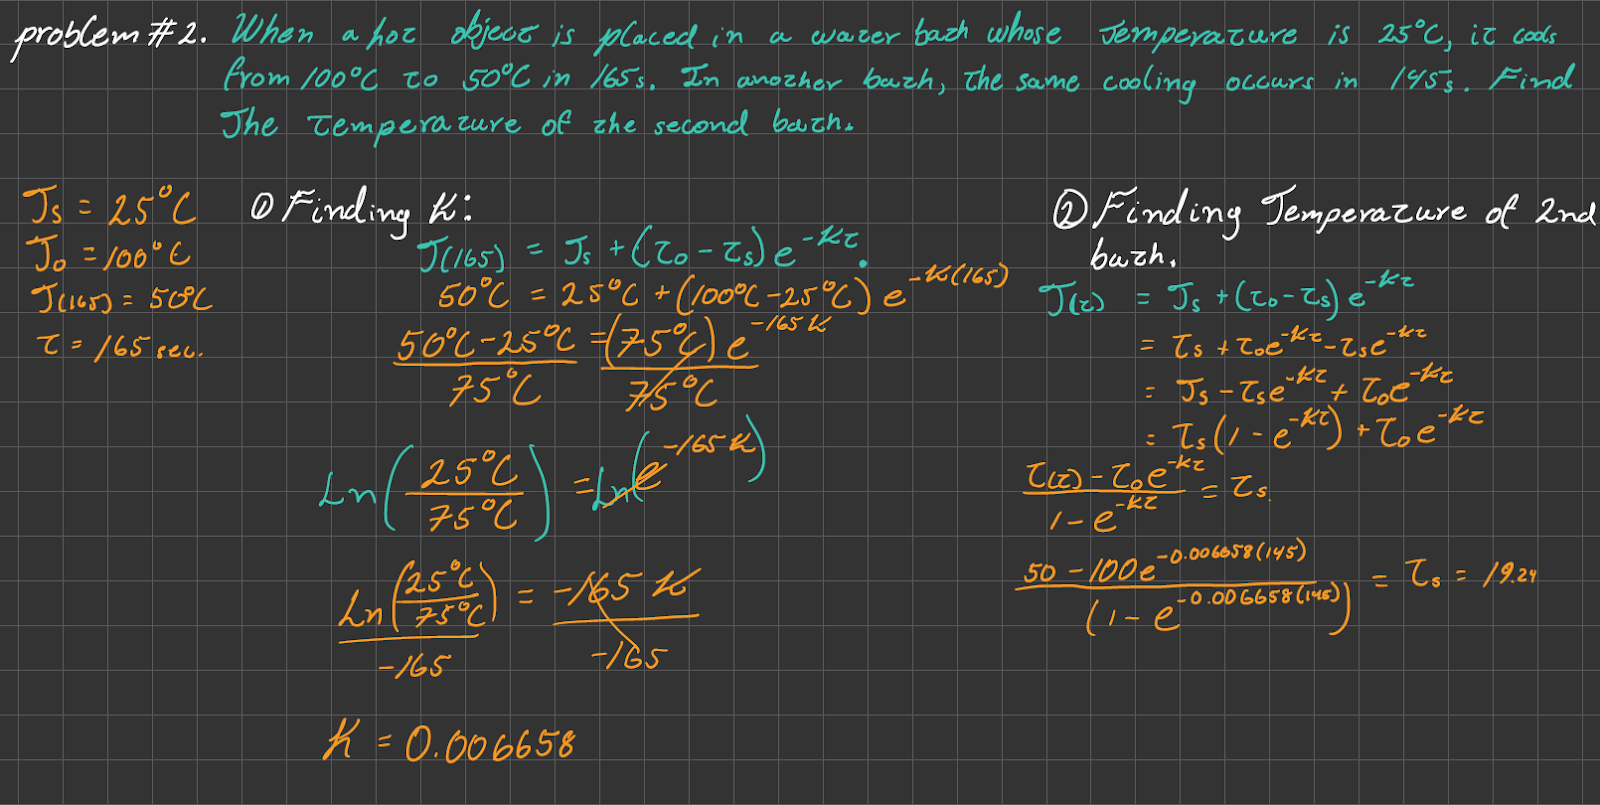 problem #2. When a hot object is placed in a water bath whose Temperature is 25°C, it cools
from 100°C to 50°C in 165s. In another bath, the same cooling occurs in 145s. Find
The temperature of the second bath.
Ts = 25°C
To = 100°C
T(165) = 50°C
t = 165 sec.
① Finding K:
T(165) = Ts + (To - Ts) e^-Kt.
50°C = 25°C + (100°C - 25°C) e^-K(165)
(50°C - 25°C)/75°C = (75°C) e^-165K/75°C
Ln(25°C/75°C) = Ln(e^-165K)
Ln(25°C/75°C)/-165 = -165 K/-165
K = 0.006658
② Finding Temperature of 2nd
bath.
T(t) = Ts + (To - Ts) e^-Kt
= Ts + Toe^-Kt - Tse^-Kt
= Ts - Tse^-Kt + Toe^-Kt
= Ts(1 - e^-Kt) + Toe^-Kt
(T(t) - Toe^-Kt)/(1 - e^-Kt) = Ts.
(50 - 100e^-0.006658(145))/(1 - e^-0.006658(145)) = Ts = 19.24